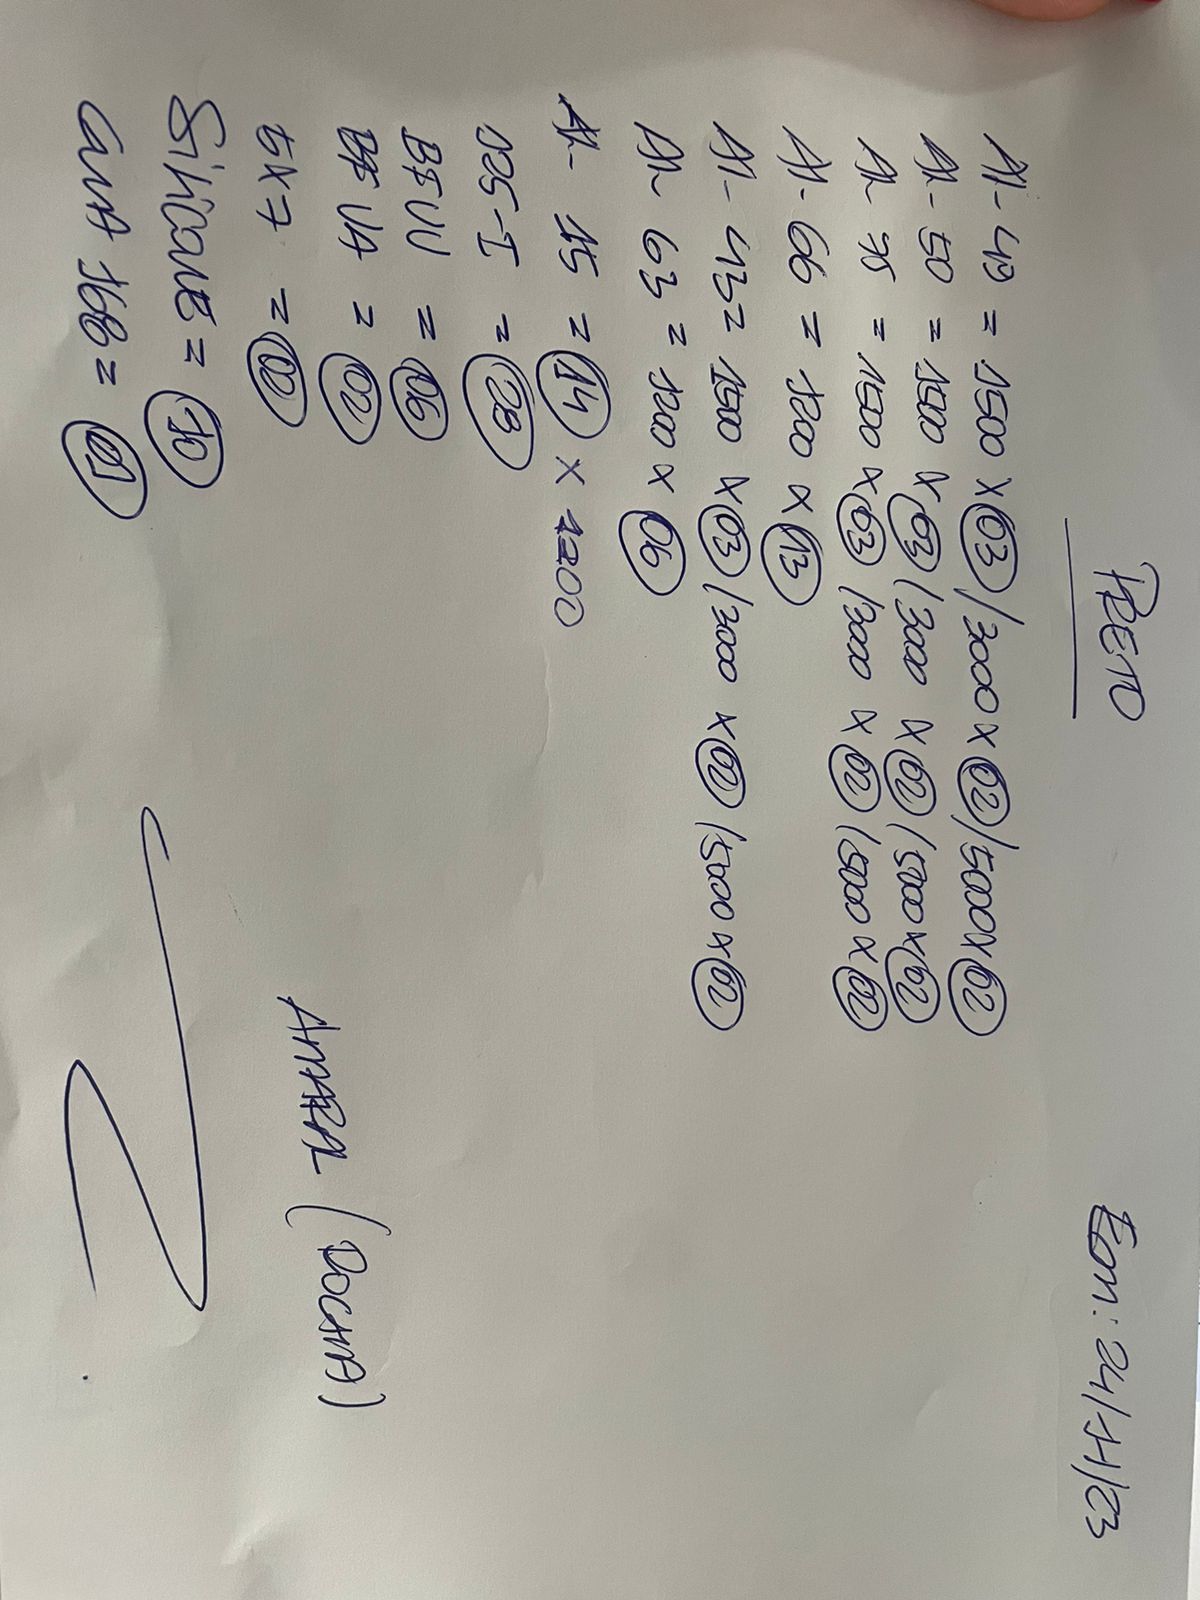 PRETO Em: 24/11/23
AL-49 = 1500 x 03 / 3000 x 02 / 5000 x 02
AL-50 = 1500 x 03 / 3000 x 02 / 5000 x 02
AL-75 = 1500 x 03 / 3000 x 02 / 5000 x 02
AL-66 = 1200 x 13
AL-43 = 1500 x 03 / 3000 x 02 / 5000 x 02
AL-63 = 1200 x 06
AL-15 = 14 x 1200
125-I = 28
BF UU = 06
BF UA = 02
5x7 = 02
Silicone = 10
Cuna 168 = 01
AMARAL (ROCHA)